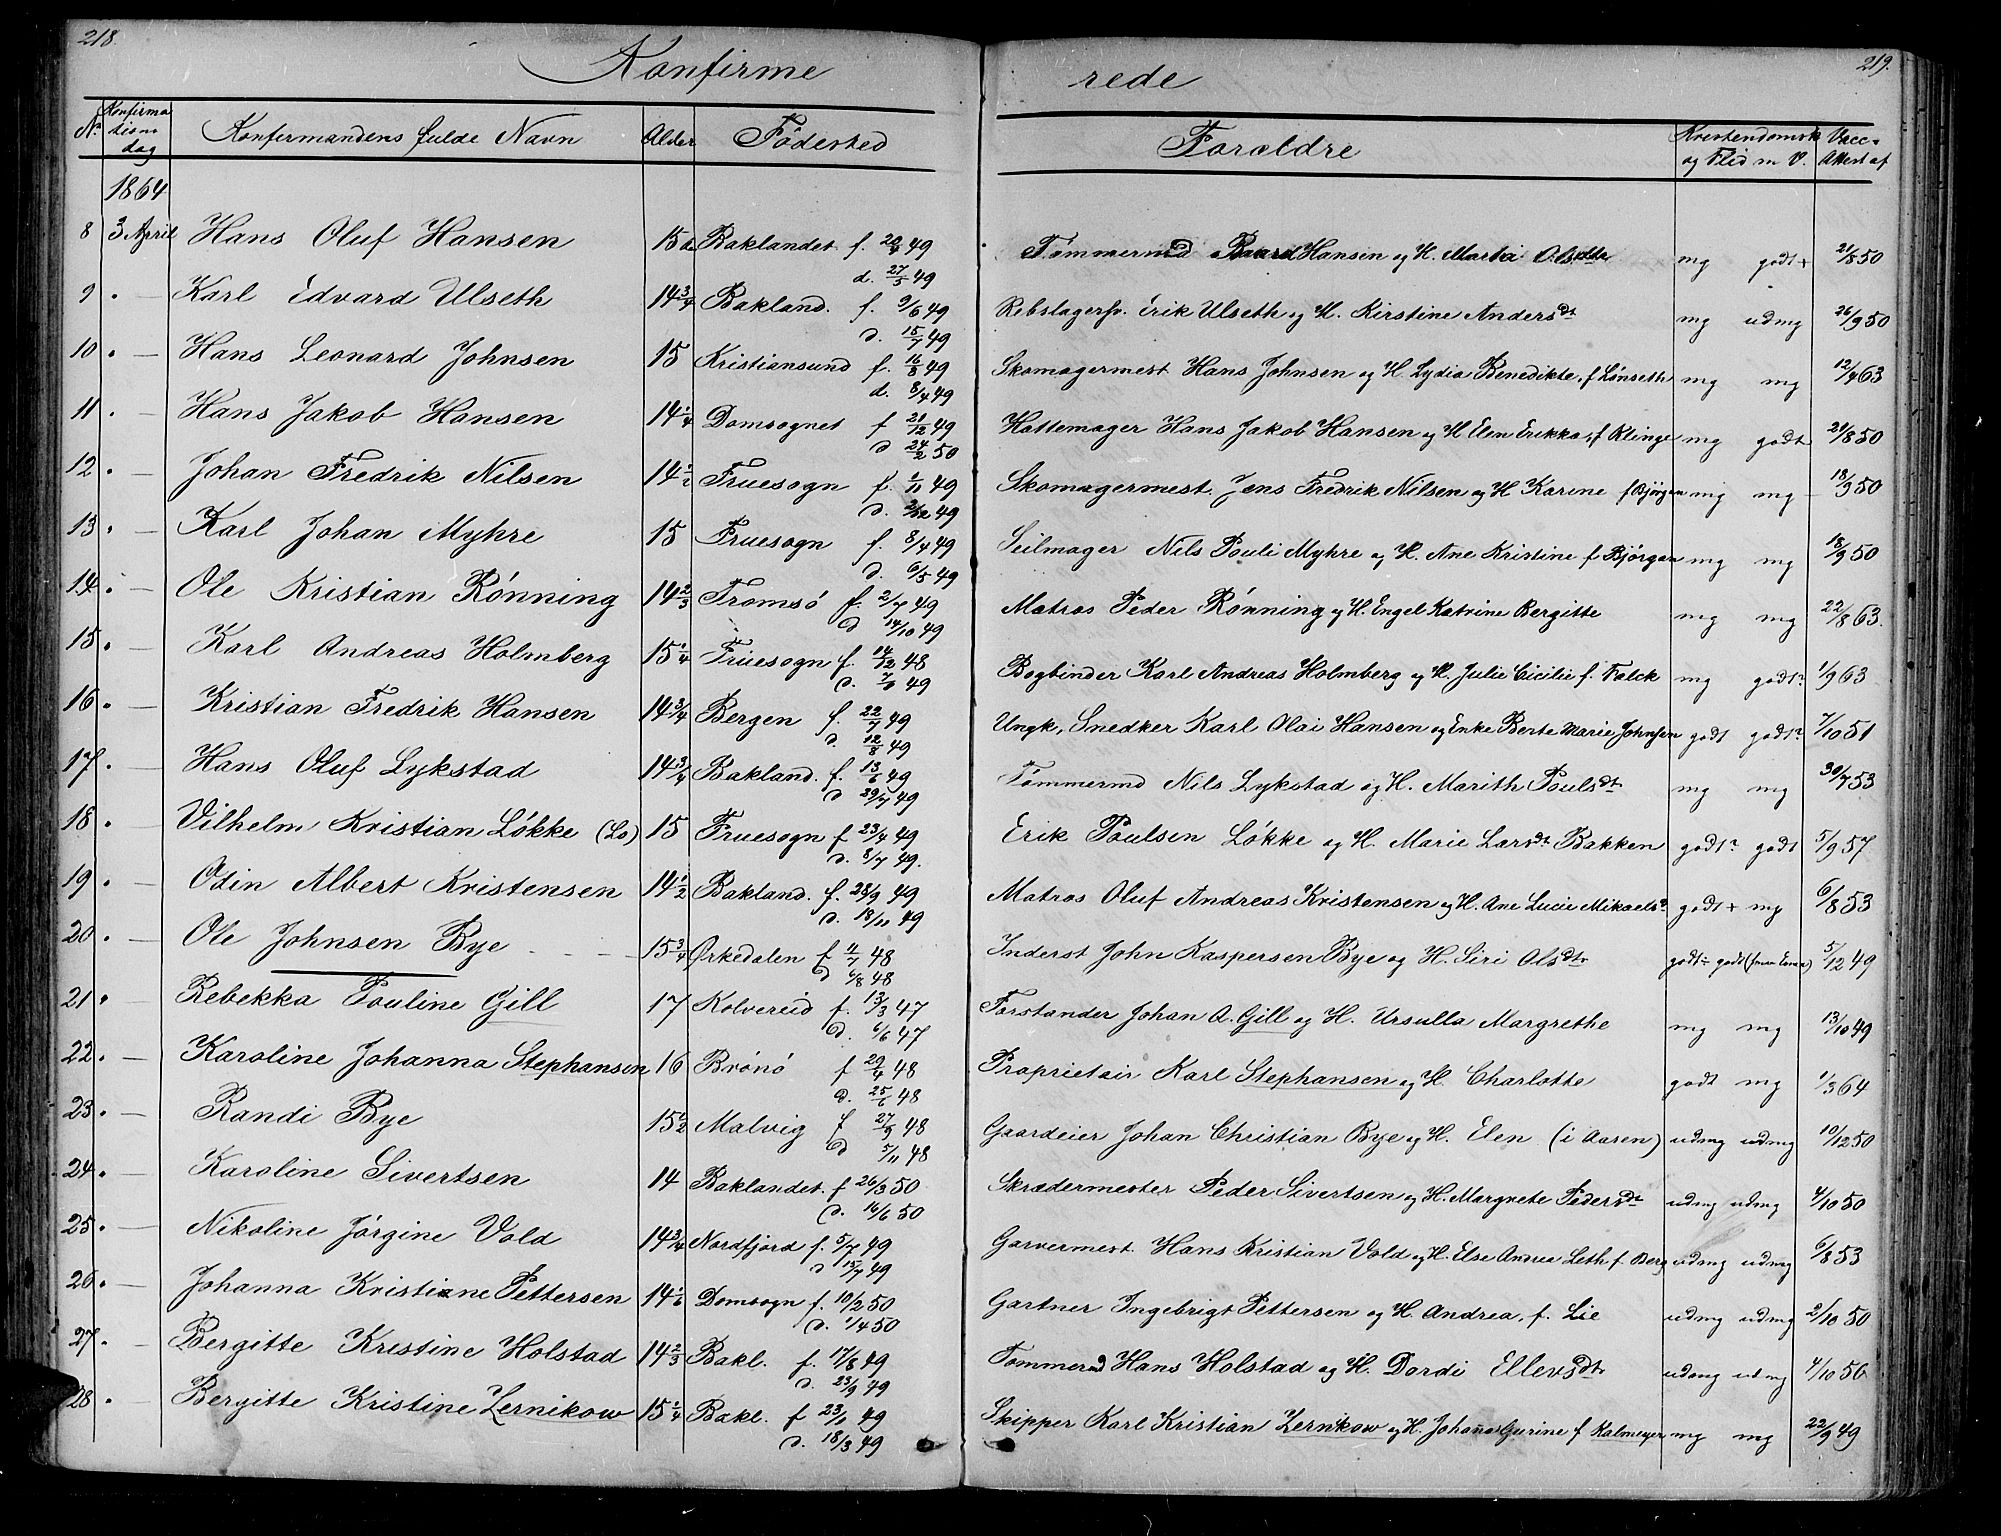 218.
Konfirme
rede
219.
No Konfirmations dag Konfirmandens fulde Navn Alder Fødested Foreldre Kristendomsk og Flid m V. Vacc. Attest af
1864
8 3 April Hans Oluf Hansen Baklandet f. 49 Tømmermd Baard Hansen og H. Marta mg godt + 21/8 50
d. 27/5 49
9 . — Karl Edvard Ulseth 14 3/4 Bakland. f. 9/6 49 Rebslagersv. Erik Ulseth og H. Kirstine Andersdt mg udmg 26/9 50
d. 15/7 49
10 . — Hans Leonard Johnsen 15 Kristiansund f. 16/8 49 Skomagermest Hans Johnsen og H Lydia Benedikte, f Lønseth mg mg 12/4 63
d. 8/4 49
11 . — Hans Jakob Hansen 14 1/4 Domsognet f 21/12 49 Hattemager Hans Jakob Hansen og H Elen Erikka, f Klinge mg godt 21/8 50
d 24/2 50
12 . — Johan Fredrik Nilsen 14 1/2 Fruesogn f. 1/11 49 Skomagermest. Jens Fredrik Nilsen og H Karine f Bjørgan mg mg 18/9 50
d. 49
13 . Karl Johan Myhre 15 Fruesogn f. 8/4 49 Seilmager Nils Pouli Myhre og H. Ane Kristine f Bjørgan mg mg 18/9 50
d. 6/5 49
14 . — Ole Kristian Rønning 14 2/3 Tromsø f. 2/7 49 Matros Peder Rønning og H. Engel Katrine Bergitte mg mg 22/8 63.
d 14/10 49
15 . Karl Andreas Holmberg 15 1/4 Fruesogn f. 14/12 48 Bogbinder Karl Andreas Holmberg og H. Julie Cicilie f. Falck mg godt 1/9 63
d. 49
16 . — Kristian Fredrik Hansen 14 3/4 Bergen f. 22/7 49 Ungk, Snedker Karl Olai Hansen og Enke Berte Marie Johnsen godt godt 7/10 51
d. 12/8 49
17 . — Hans Oluf Lykstad 14 3/4 Bakland. f. 13/6 49 Tømmermd Nils Lykstad og H. Marith Poulsdt mg mg 30/7 53
d 29/7 49
18 . — Vilhelm Kristian Løkke (Lo) 15 Fruesogn f 23/4 49 Erik Poulsen Løkke og H. Marie Larsdt Bakken godt godt 5/9 57
d. 8/7 49.
19 . — Odin Albert Kristensen 14 1/2 Bakland. f. 28/9 49 Matros Oluf Andreas Kristensen og H. Ane Lucie Mikaelsd godt + mg 6/8 53
d. 18/11 49
20 . — Ole Johnsen Bye 15 3/4 Ørkedalen f 4/7 48 Inderst John Kaspersen Bye og H. Siri Olsdtr godt godt 5/12 49
d 6/8 48
21 . Rebekka Pouline Gill 17 Kolvereid f. 13/3 47 Forstander Johan A. Gill og H. Ursulla Margrethe mg mg 13/10 49
d. 6/6 47
22 . — Karoline Johanna Stephansen 16 Brønø f 29/4 48 Proprietair Karl Stephansen og H. Charlotte godt mg 1/3 64
d. 25/6 48
23 . — Randi Bye 15 1/2 Malvig f 27/9 48 Gaardeier Johan Christian Bye og H. Elen (i Aaren) udmg udmg 10/12 50
d 5/11 48
24 . — Karoline Sivertsen 14 Baklandet. f 26/3 50 Skrædermester Peder Sivertsen og H. Margrete Pedersdt udmg udmg 4/10 50
d. 16/6 50
25 . — Nikoline Jørgine Vold 14 3/4 Nordfjord f. 5/7 49 Garvermest. Hans Kristian Vold og H. Else Andrea Leth f. Berg udmg udmg 6/8 53
d 15/7 49
26 . — Johanna Kristiane Pettersen 14 1/6 Domsogn f. 10/2 50 Gartner Ingebrigt Pettersen og H. Andrea, f. Lie udmg udmg 2/10 50
d. 1/4 50
27 . — Bergitte Kristine Holstad 14 2/3 Bakl. f. 17/8 49 Tømmermd Hans Holstad og H. Dordi Ellevsdtr udmg udmg 4/10 56
d. 23/9 49
28 . — Bergitte Kristine Zernikow 15 1/4 Bakl. f 23/1 49 Skipper Karl Kristian Zernikow og H. Johanna Gurine f Kalmeyer mg mg 22/9 49
d. 18/3 49